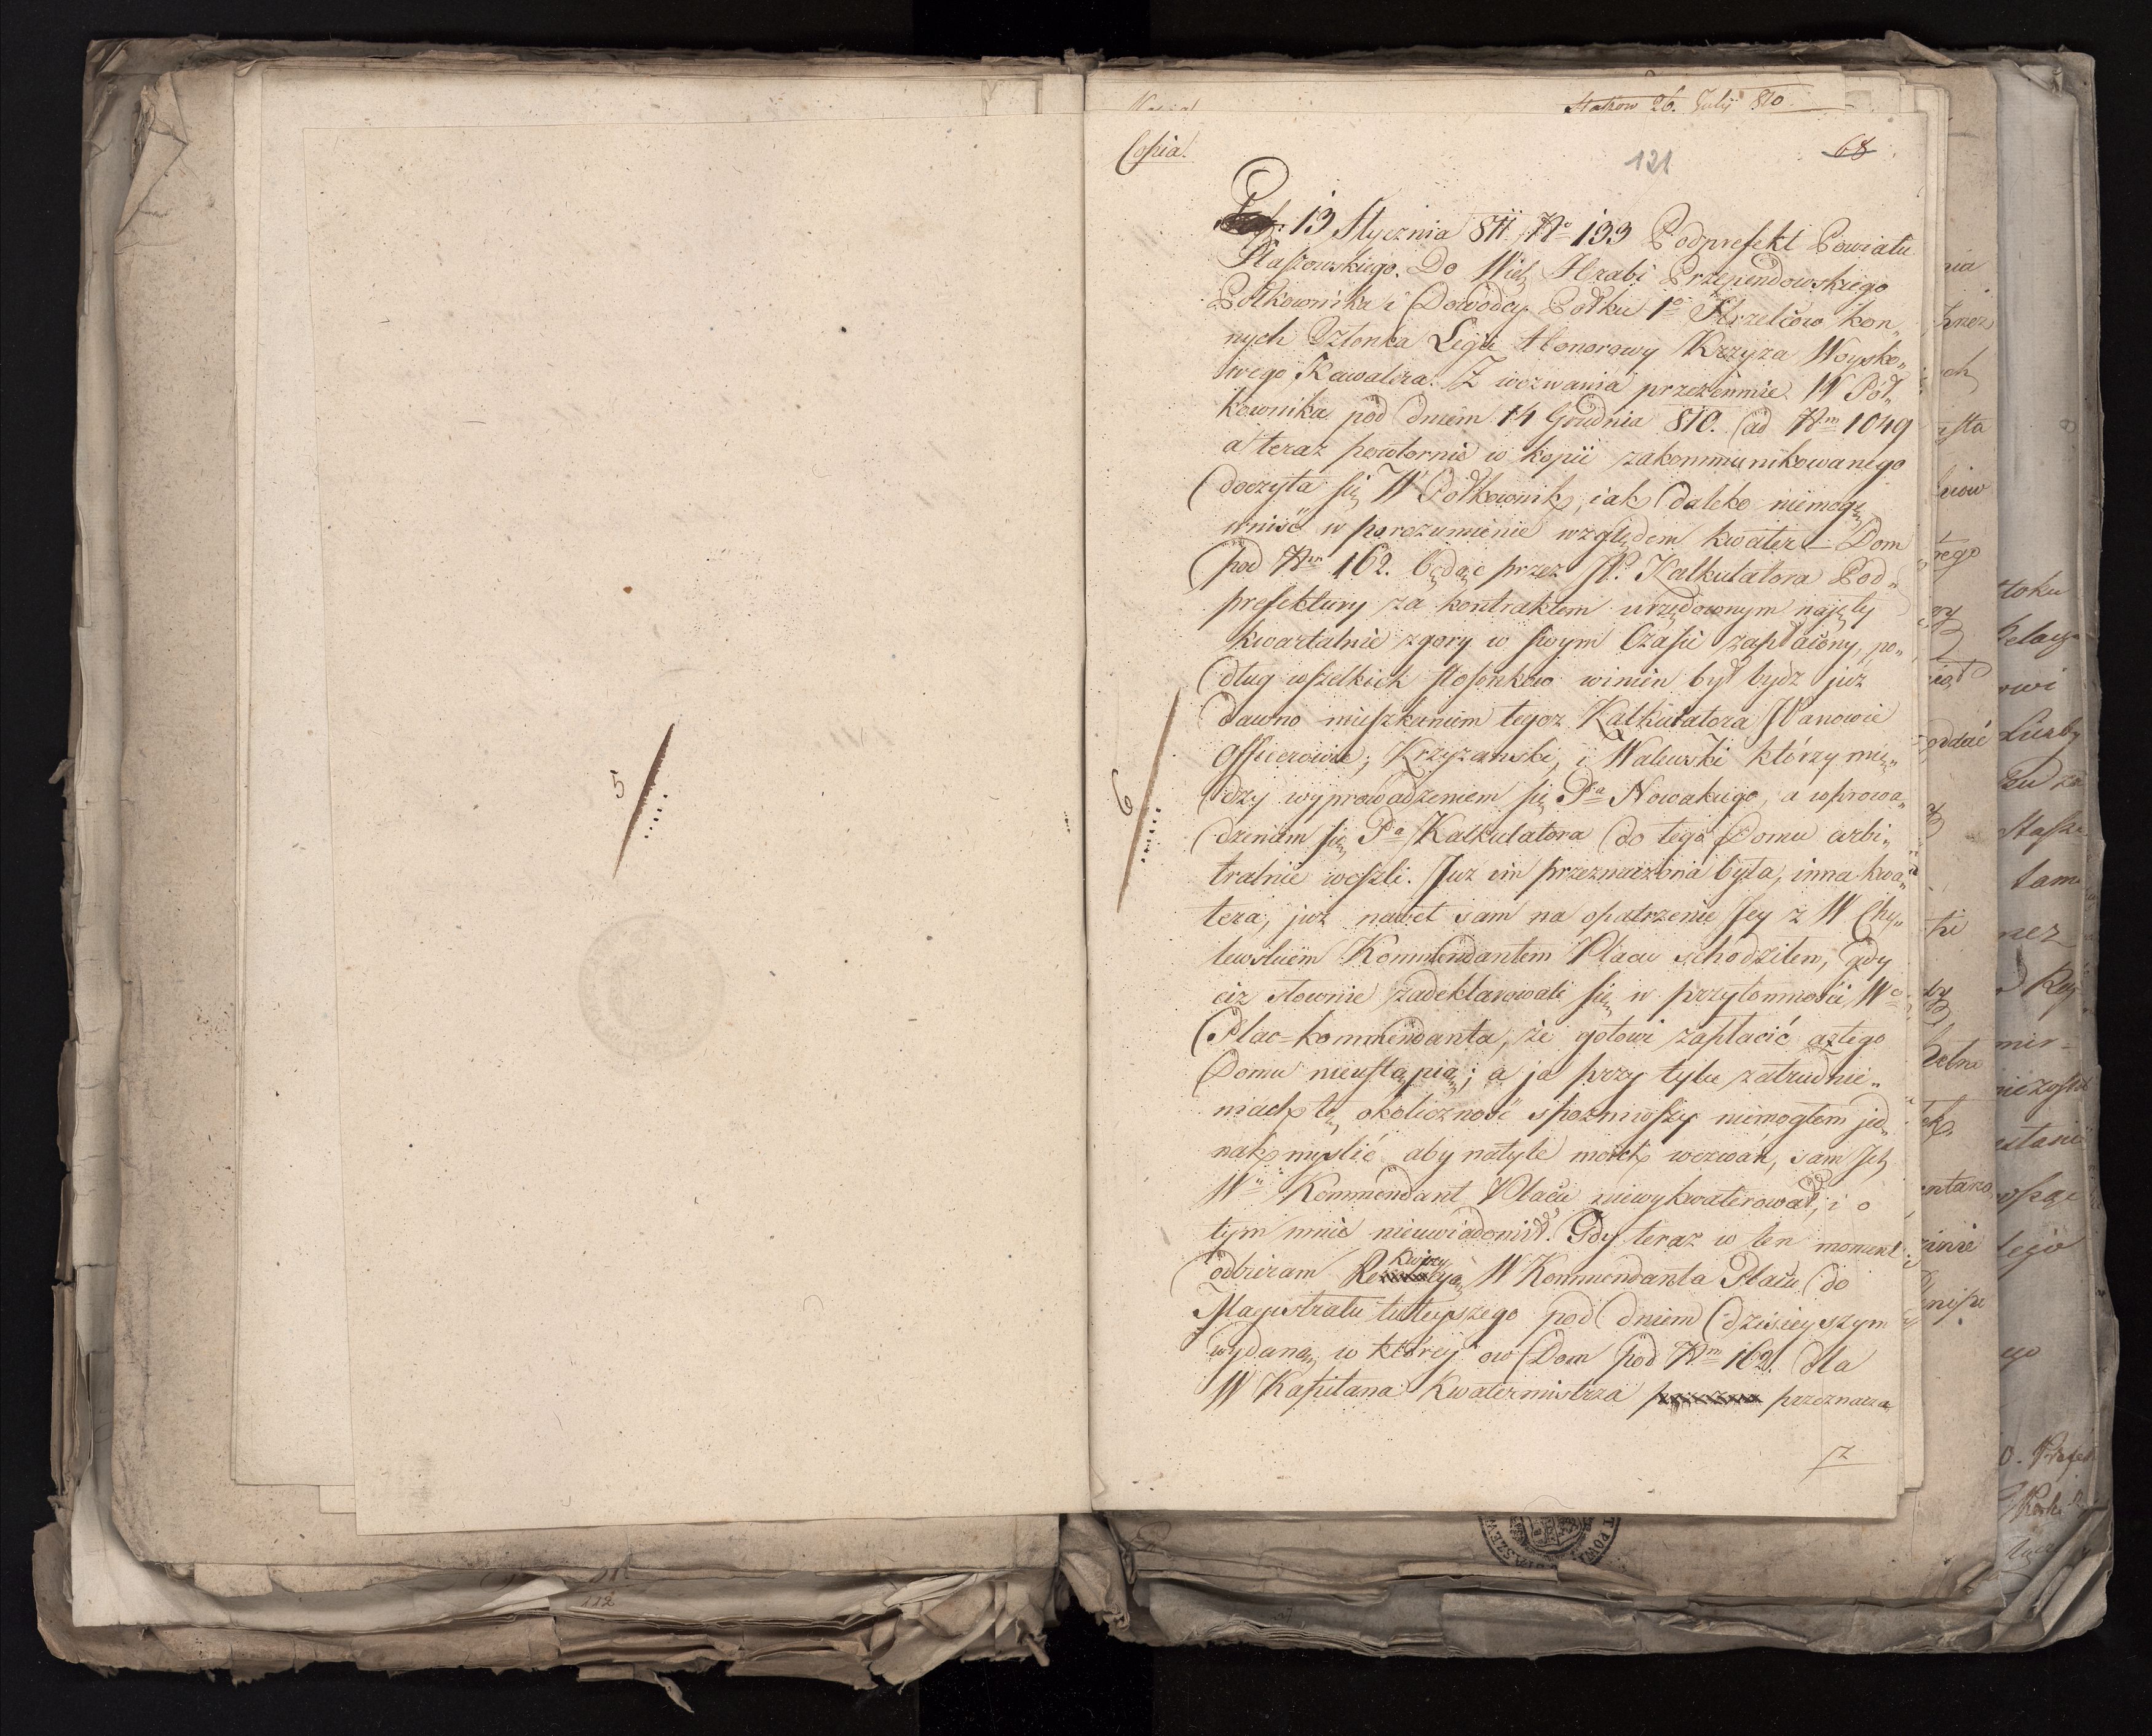 5
112
Staszow 26. July 810.
Copia.
121
68
13 Stycznia 811. No 133 Podprefekt Powiatu
Staszowskiego. Do Wiel. Hrabi Przependowskiego
Półkownika i Dowodcy Półku 1o Strzelców kon„
nych Członka Legii Honorowy Krzyża Woysko„
wego Kawalera. Z wezwania przezemnie W Pół„
kownika pod dniem 14 Grudnia 810. ad Nrm 1049
a teraz powtornie w kopii zakommunikowanego
doczyta się W Półkownik, iak daleko niemogę
wniść w porozumienie względem kwater – Dom
pod Nrm 162. będąc przez JP. Kalkulatora Pod„
prefektury za kontraktem urzędownym najęty
kwartalnie zgory w swym Czasie zapłacony, po„
dług wszelkich stosonków winien był bydz już
dawno mieszkaniem tegoz Kalkulatora JPanowie
Officerowie, Krzyzanski, i Walewski którzy mię„
dzy wyprowadzeniem się Pa Nowakiego, a wprowa„
dzeniem się Pa Kalkulatora do tego Domu arbi„
tralnie weszli. Juz im przeznaczona była, inna kwa„
tera, już nawet sam na opatrzenie Jey z W Chy„
lewskiem Kommendantem Placu schodziłem, gdy
ciż słownie zadeklarowali się w przytomności Wo
Plac=kommendanta, że gotowi zapłacić a z tego
Domu nieustąpią; a ja przy tylu zatrudnie„
niach tę okoliczność spozniwszy niemogłem jed„
nak myslić aby natyle moich wezwań, sam Ich
W Kommendant Placu niewykwaterował, i o
tym mnie nieuwiadomił. Gdy teraz w ten moment
odbieram Rekwizycyą W Kommendanta Placu do
Magistratu tuteyszego pod dniem dzisieyszym
wydaną, w którey ow Dom pod Nrm 162. dla
W Kapitana Kwatermistrza przeznacza
6